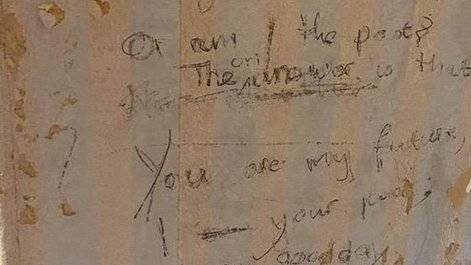 Or am I the past?
The answer is that
You are my future,
I your past,
good day